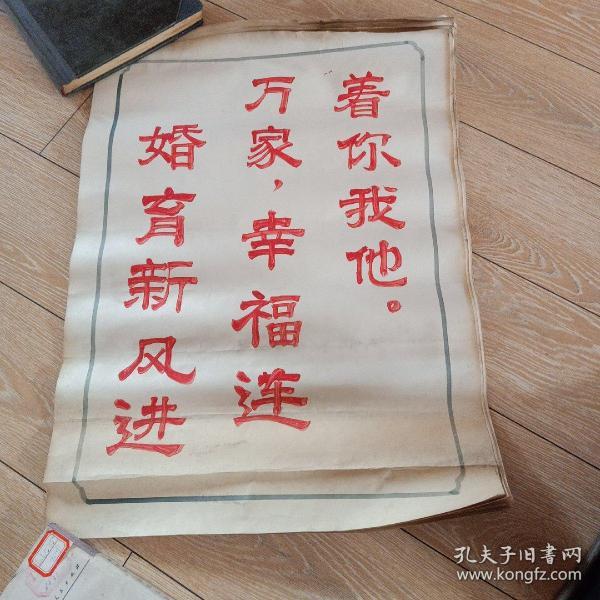 婚育新风进
万家，幸福连
着你我他。
孔夫子旧书网
www.kongfz.com